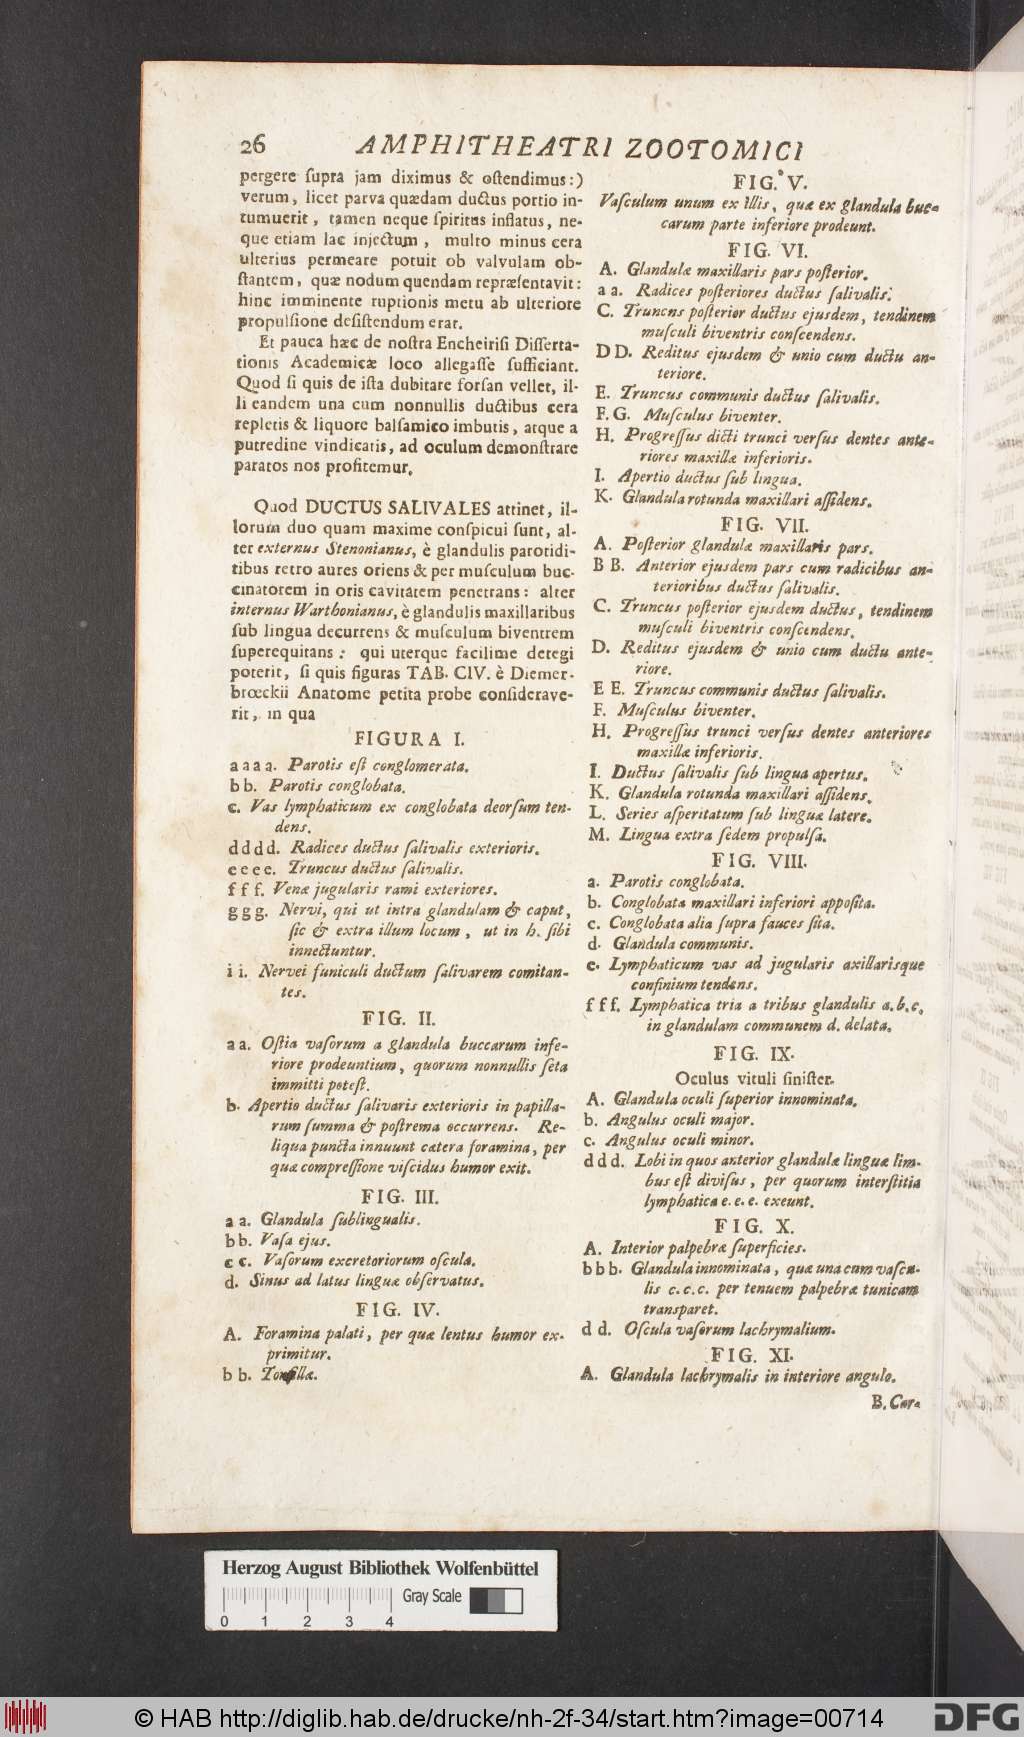 26 AMPHITHEATRI ZOOTOMICI
pergere ſupra jam diximus & oſtendimus:)
verum, licet parva quædam ductus portio in-
tumuerit, tamen neque ſpiritus inflatus, ne-
que etiam lac injectum, multo minus cera
ulterius permeare potuit ob valvulam ob-
ſtantem, quæ nodum quendam repræſentavit:
hinc imminente ruptionis metu ab ulteriore
propulſione deſiſtendum erat.
Et pauca hæc de noſtra Encheiriſi Diſſerta-
tionis Academicæ loco allegaſſe ſufficiant.
Quod ſi quis de iſta dubitare forſan vellet, il-
li eandem una cum nonnullis ductibus cera
repletis & liquore balſamico imbutis, atque a
putredine vindicatis, ad oculum demonſtrare
paratos nos profitemur.
Quod DUCTUS SALIVALES attinet, il-
lorum duo quam maxime conſpicui ſunt, al-
ter externus Stenonianus, è glandulis parotidi-
tibus retro aures oriens & per muſculum buc-
cinatorem in oris cavitatem penetrans: alter
internus Warthonianus, è glandulis maxillaribus
ſub lingua decurrens & muſculum biventrem
ſuperequitans: qui uterque facilime detegi
poterit, ſi quis figuras TAB. CIV. è Diemer-
brœckii Anatome petita probe conſiderave-
rit, in qua
FIGURA I.
a a a a. Parotis eſt conglomerata.
b b. Parotis conglobata.
c. Vas lymphaticum ex conglobata deorſum ten-
dens.
d d d d. Radices ductus ſalivalis exterioris.
e e e e. Truncus ductus ſalivalis.
f f f. Venæ jugularis rami exteriores.
g g g. Nervi, qui ut intra glandulam & caput,
ſic & extra illum locum, ut in h. ſibi
innectuntur.
i i. Nervei funiculi ductum ſalivarem comitan-
tes.
FIG. II.
a a. Oſtia vaſorum a glandula buccarum infe-
riore prodeuntium, quorum nonnullis ſeta
immitti poteſt.
b. Apertio ductus ſalivaris exterioris in papilla-
rum ſumma & poſtrema occurrens. Re-
liqua puncta innuunt cætera foramina, per
quæ compreſſione viſcidus humor exit.
FIG. III.
a a. Glandula ſublingualis.
b b. Vaſa ejus.
c c. Vaſorum excretoriorum oſcula.
d. Sinus ad latus linguæ obſervatus.
FIG. IV.
A. Foramina palati, per quæ lentus humor ex-
primitur.
b b. Tonſillæ.
FIG. V.
Vaſculum unum ex illis, quæ ex glandula buc-
carum parte inferiore prodeunt.
FIG. VI.
A. Glandulæ maxillaris pars poſterior.
a a. Radices poſteriores ductus ſalivalis.
C. Truncus poſterior ductus ejusdem, tendinem
muſculi biventris conſcendens.
D D. Reditus ejusdem & unio cum ductu an-
teriore.
E. Truncus communis ductus ſalivalis.
F. G. Muſculus biventer.
H. Progreſſus dicti trunci verſus dentes ante-
riores maxillæ inferioris.
I. Apertio ductus ſub lingua.
K. Glandula rotunda maxillari aſſidens.
FIG. VII.
A. Poſterior glandulæ maxillaris pars.
B B. Anterior ejusdem pars cum radicibus an-
terioribus ductus ſalivalis.
C. Truncus poſterior ejusdem ductus, tendinem
muſculi biventris conſcendens.
D. Reditus ejusdem & unio cum ductu ante-
riore.
E E. Truncus communis ductus ſalivalis.
F. Muſculus biventer.
H. Progreſſus trunci verſus dentes anteriores
maxillæ inferioris.
I. Ductus ſalivalis ſub lingua apertus.
K. Glandula rotunda maxillari aſſidens.
L. Series aſperitatum ſub linguæ latere.
M. Lingua extra ſedem propulſa.
FIG. VIII.
a. Parotis conglobata.
b. Conglobata maxillari inferiori appoſita.
c. Conglobata alia ſupra fauces ſita.
d. Glandula communis.
e. Lymphaticum vas ad jugularis axillarisque
confinium tendens.
f f f. Lymphatica tria a tribus glandulis a. b. c.
in glandulam communem d. delata.
FIG. IX.
Oculus vituli ſiniſter.
A. Glandula oculi ſuperior innominata.
b. Angulus oculi major.
c. Angulus oculi minor.
d d d. Lobi in quos anterior glandulæ linguæ lim-
bus eſt diviſus, per quorum interſtitia
lymphatica e. e. e. exeunt.
FIG. X.
A. Interior palpebræ ſuperficies.
b b b. Glandula innominata, quæ una cum vaſcu-
lis c. c. c. per tenuem palpebræ tunicam
transparet.
d d. Oſcula vaſorum lachrymalium.
FIG. XI.
A. Glandula lachrymalis in interiore angulo.
B. Car-
Herzog August Bibliothek Wolfenbüttel
Gray Scale
0 1 2 3 4
© HAB http://diglib.hab.de/drucke/nh-2f-34/start.htm?image=00714
DFG